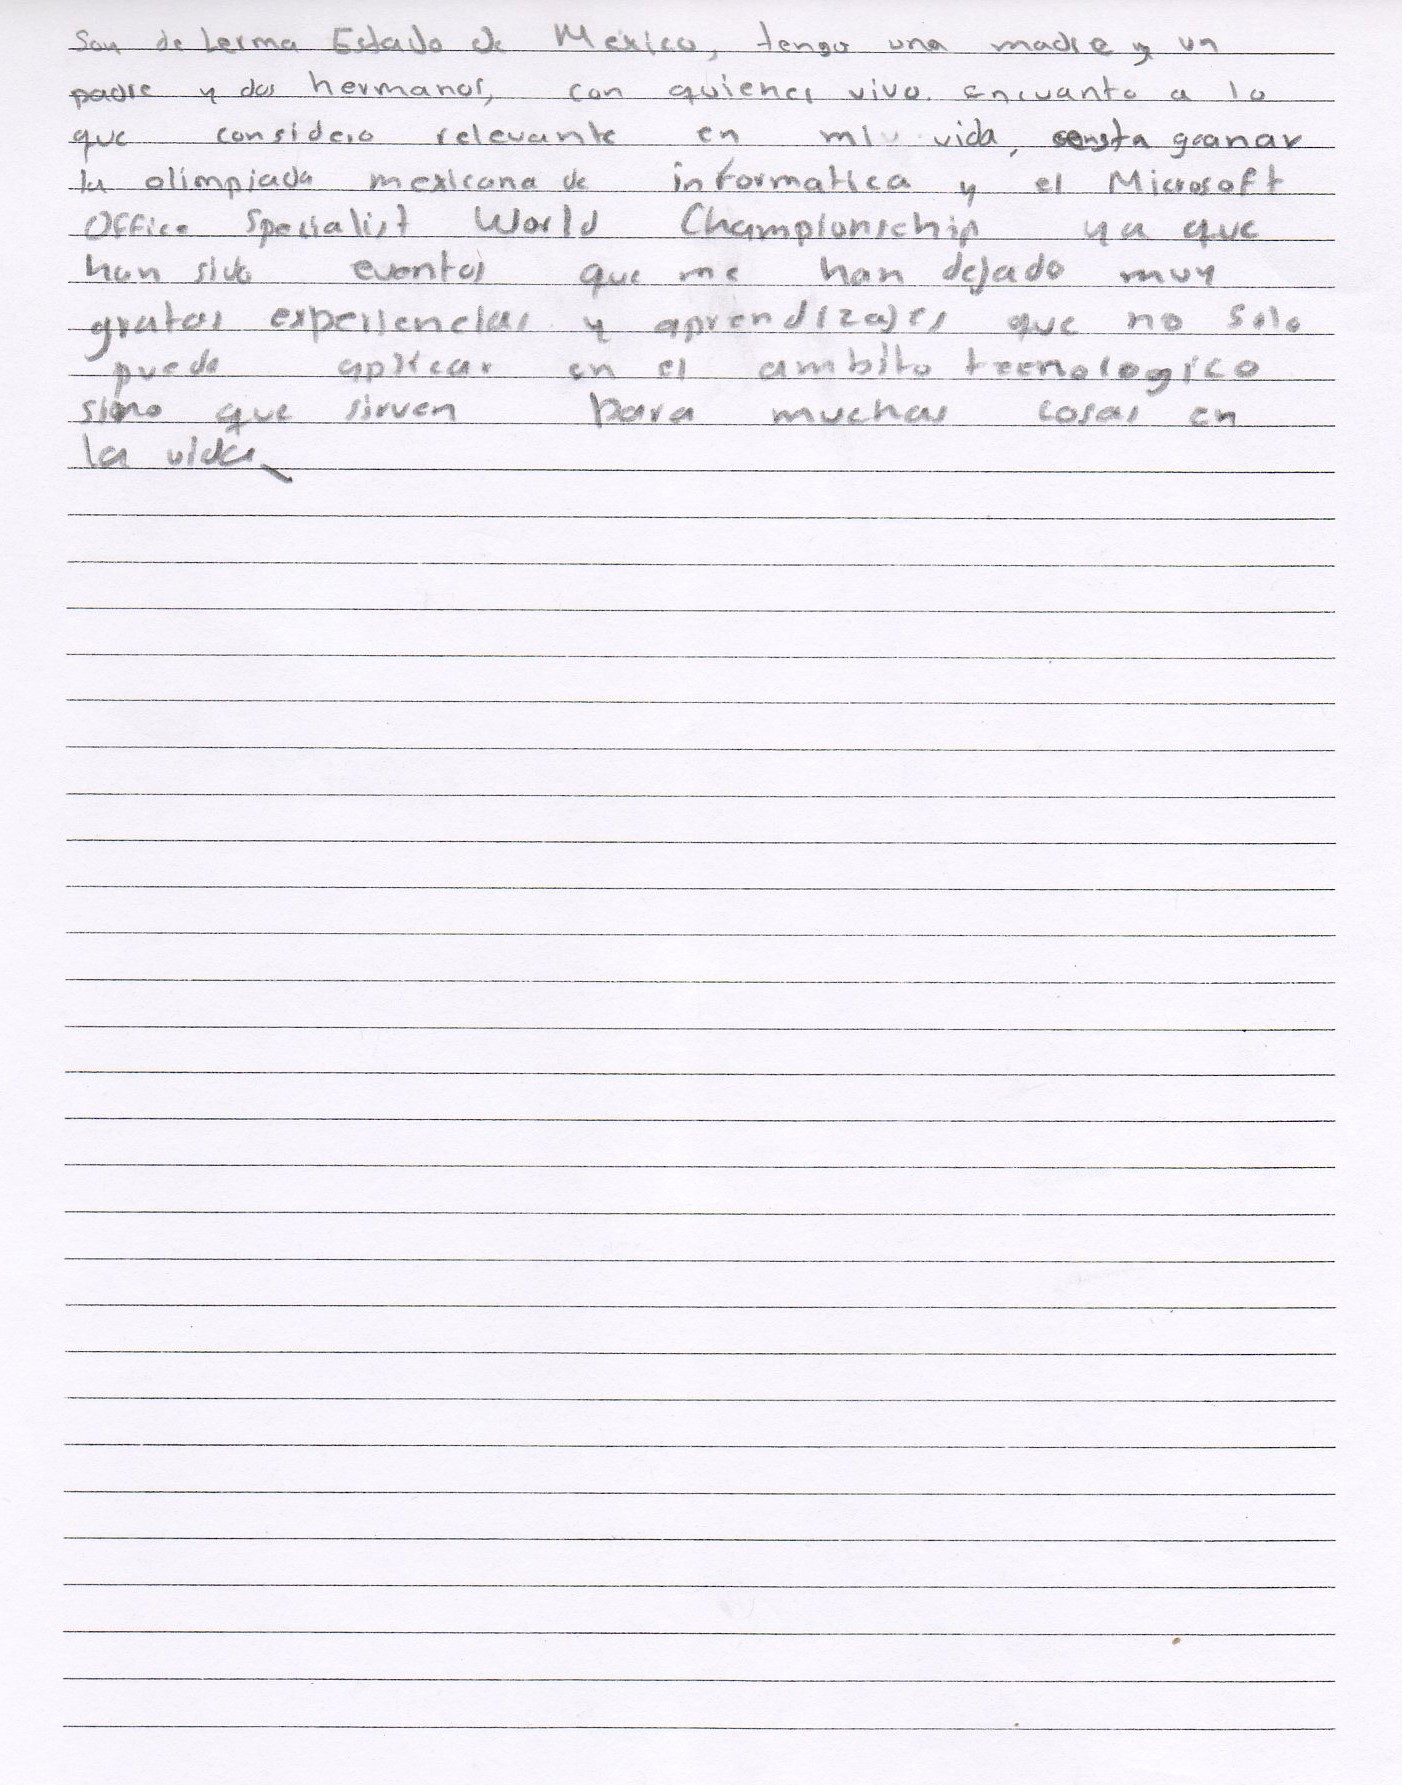 Soy de Lerma Estado de Mexico, tengo una madre y un
padre y dos hermanos, con quienes vivo. encuanto a lo
que considero relevante en mi vida, consta ganar
la olimpiada mexicana de informatica y el Microsoft
Office Specialist World Championschip ya que
han sido eventos que me han dejado muy
gratas experiencias y aprendizajes que no solo
puedo aplicar en el ambito tecnologico
sino que sirven para muchas cosas en
la vida